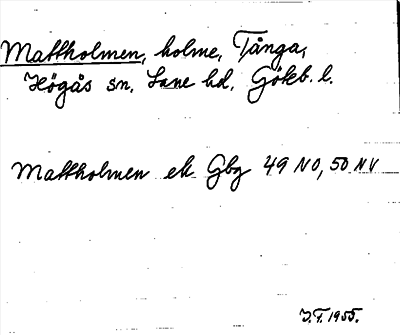 Mattholmen, holme, Tånga,
Högås sn, Lane hd, Gökb. l.
Mattholmen ek Gbg 49 NO, 50 NV
J.T. 1955.